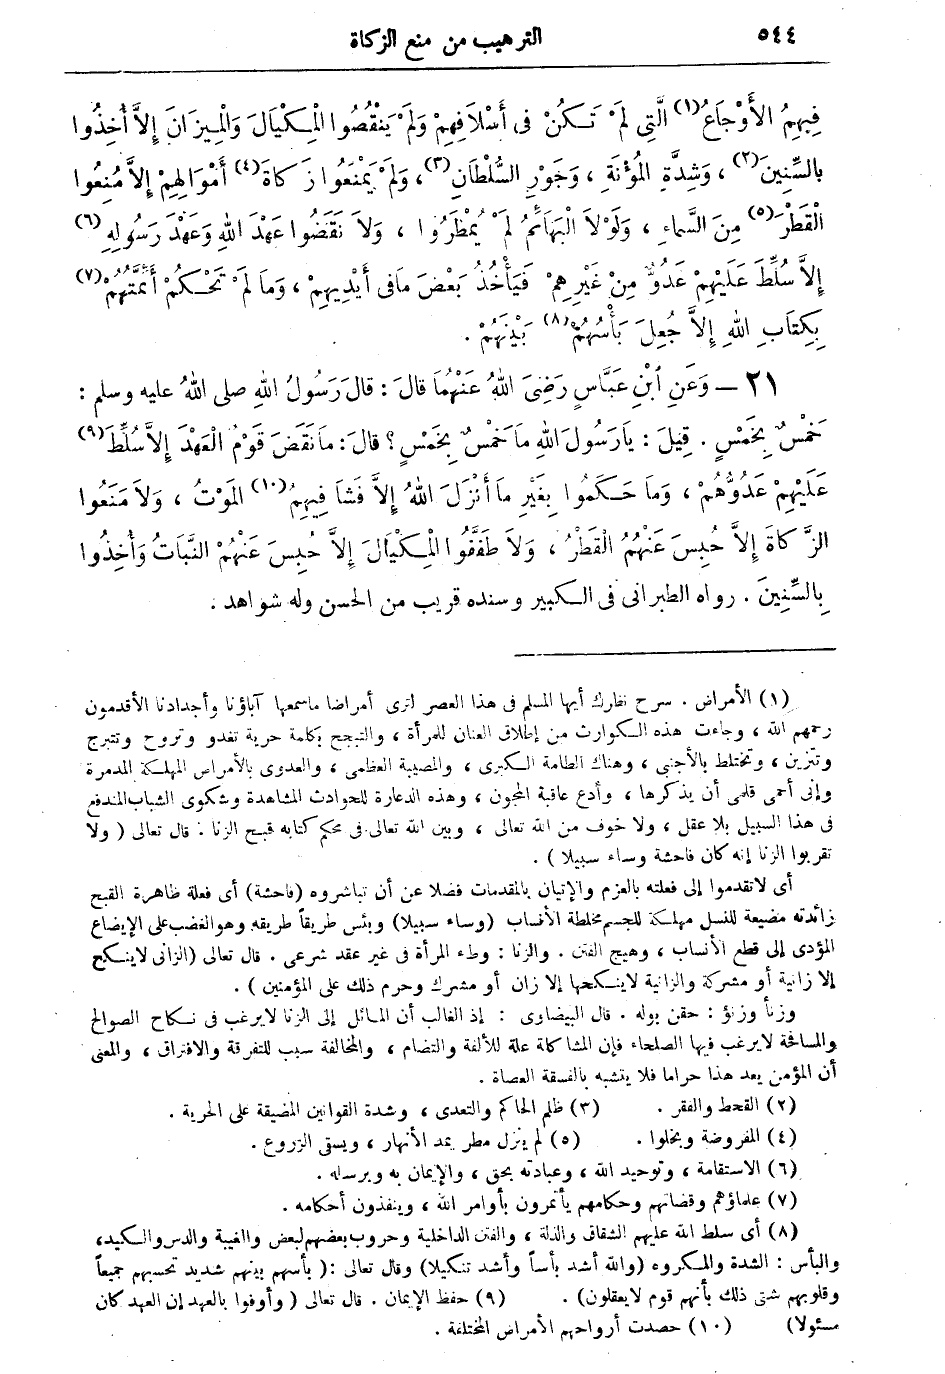 ٥٤٤ الترهيب من منع الزكاة
فِيهِمُ الأَوْجَاعُ(١) الَّتِى لَمْ تَكُنْ فى أَسْلَافِهِمْ وَلَمْ يَنْقُصُوا الْمِكْيَالَ وَالْمِيزَانَ إِلاَّ أُخِذُوا
بِالسِّنِينَ(٢) ، وَشِدَّةِ الْمُؤْنَةِ ، وَجَوْرِ السُّلْطَانِ(٣) ، وَلَمْ يَمْنَعُوا زَكَاةَ(٤) أَمْوَالِهِمْ إِلاَّ مُنِعُوا
الْقَطْرَ(٥) مِنَ السَّمَاءِ ، وَلَوْلاَ الْبَهَائِمُ لَمْ يُمْطَرُوا ، وَلاَ نَقَضُوا عَهْدَ اللهِ وَعَهْدَ رَسُولِهِ (٦)
إِلاَّ سُلِّطَ عَلَيْهِمْ عَدُوٌّ مِنْ غَيْرِهِمْ فَيَأْخُذُ بَعْضَ مَافى أَيْدِيهِمْ ، وَمَا لَمْ تَحْكُمْ أَئِمَّتُهُمْ(٧)
بِكِتَابِ اللهِ إِلاَّ جُعِلَ بَأْسُهُمْ(٨) بَيْنَهُمْ .
٢١ – وَعَنِ ابْنِ عَبَّاسٍ رَضِىَ اللهُ عَنْهُمَا قالَ : قالَ رَسُولُ اللهِ صلى اللهُ عليه وسلم :
خَمْسٌ بِخَمْسٍ . قِيلَ : يَارَسُولَ اللهِ مَا خَمْسٌ بِخَمْسٍ ؟ قالَ : مَا نَقَضَ قَوْمٌ الْعَهْدَ إِلاَّ سُلِّطَ (٩)
عَلَيْهِمْ عَدُوُّهُمْ ، وَمَا حَكَمُوا بِغَيْرِ مَا أَنْزَلَ اللهُ إِلاَّ فَشَا فِيهِمُ(١٠) الْمَوْتُ ، وَلاَ مَنَعُوا
الزَّكَاةَ إِلاَّ حُبِسَ عَنْهُمُ الْقَطْرُ ، وَلاَ طَفَّفُوا الْمِكْيَالَ إِلاَّ حُبِسَ عَنْهُمُ النَّبَاتُ وَأُخِذُوا
بِالسِّنِينَ . رواه الطبرانى فى الكبير وسنده قريب من الحسن وله شواهد .
(١) الأمراض . سرح نظرك أيها المسلم فى هذا العصر لترى أمراضا ماسمعها آباؤنا وأجدادنا الأقدمون
رحمهم الله ، وجاءت هذه الكوارث من إطلاق العنان للمرأة ، والتبجح بكلمة حرية تغدو وتروح وتتبرج
وتتزين ، وتختلط بالأجنبى ، وهناك الطامة الكبرى ، والمصيبة العظمى ، والعدوى بالأمراض المهلكة المدمرة
وإنى أحمى قلمى أن يذكرها ، وأدع عاقبة المجون ، وهذه الدعارة للحوادث المشاهدة وشكوى الشباب المندفع
فى هذا السبيل بلا عقل ، ولا خوف من الله تعالى ، وبين الله تعالى فى محكم كتابه قبح الزنا . قال تعالى ( ولا
تقربوا الزنا إنه كان فاحشة وساء سبيلا ) .
أى لاتقدموا إلى فعلته بالعزم والإتيان بالمقدمات فضلا عن أن تباشروه (فاحشة) أى فعلة ظاهرة القبح
زائدته مضيعة للنسل مهلكة للجسم مخلطة الأنساب (وساء سبيلا) وبئس طريقاً طريقه وهو الغضب على الإيضاع
المؤدى إلى قطع الأنساب ، وهيج الفتن . والزنا : وطء المرأة فى غير عقد شرعى . قال تعالى (الزانى لاينكح
إلا زانية أو مشركة والزانية لاينكحها إلا زان أو مشرك وحرم ذلك على المؤمنين ) .
وزنأ وزنؤ : حقن بوله . قال البيضاوى : إذ الغالب أن المائل إلى الزنا لايرغب فى نكاح الصوالح
والمسافحة لايرغب فيها الصلحاء فإن المشاكلة علة للألفة والتضام ، والمخالفة سبب للتفرقة والافتراق ، والمعنى
أن المؤمن يعد هذا حراما فلا يتشبه بالفسقة العصاة .
(٢) القحط والفقر . (٣) ظلم الحاكم والتعدى ، وشدة القوانين المضيقة على الحرية .
(٤) المفروضة وبخلوا . (٥) لم ينزل مطر يمد الأنهار ، ويسقى الزروع .
(٦) الاستقامة ، وتوحيد الله ، وعبادته بحق ، والإيمان به وبرسله .
(٧) علماؤهم وقضاتهم وحكامهم يأتمرون بأوامر الله ، وينفذون أحكامه .
(٨) أى سلط الله عليهم الشقاق والذلة ، والفتن الداخلية وحروب بعضهم لبعض والغيبة والدس والكيد،
والبأس : الشدة والمكروه (والله أشد بأساً وأشد تنكيلا) وقال تعالى :( بأسهم بينهم شديد تحسبهم جميعاً
وقلوبهم شتى ذلك بأنهم قوم لايعقلون) . (٩) حفظ الإيمان . قال تعالى ( وأوفوا بالعهد إن العهد كان
مسئولا) (١٠) حصدت أرواحهم الأمراض المختلفة .